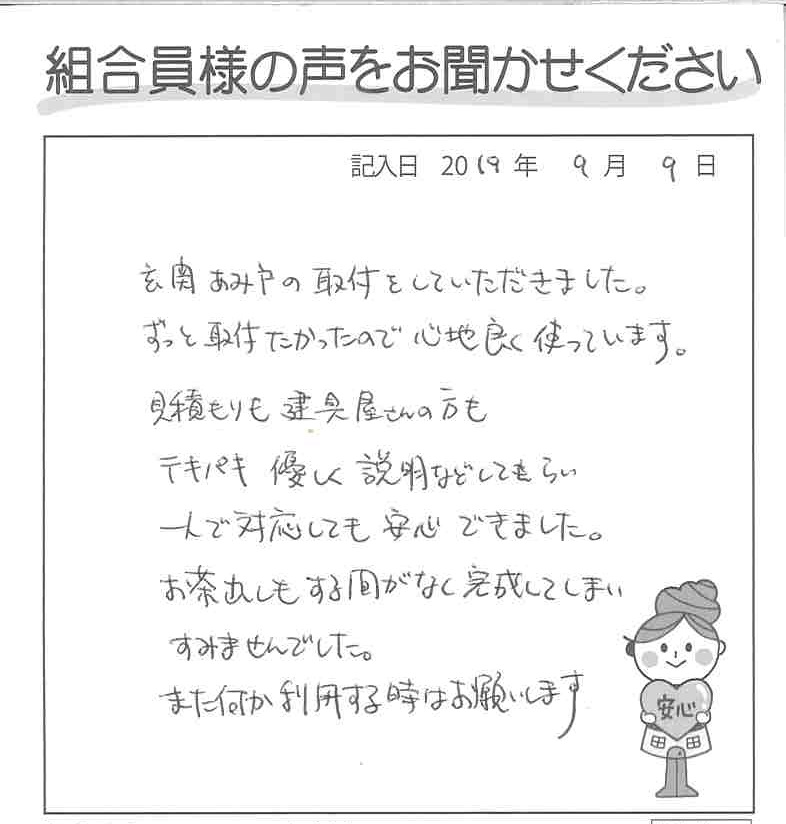 組合員様の声をお聞かせください
記入日 2019年 9月 9日
玄関あみ戸の取付をしていただきました。
ずっと取付たかったので心地良く使っています。
見積もりも建具屋さんの方も
テキパキ優しく説明などしてもらい
一人で対応しても安心できました。
お茶出しもする間がなく完成してしまい
すみませんでした。
また何か利用する時はお願いします
安心